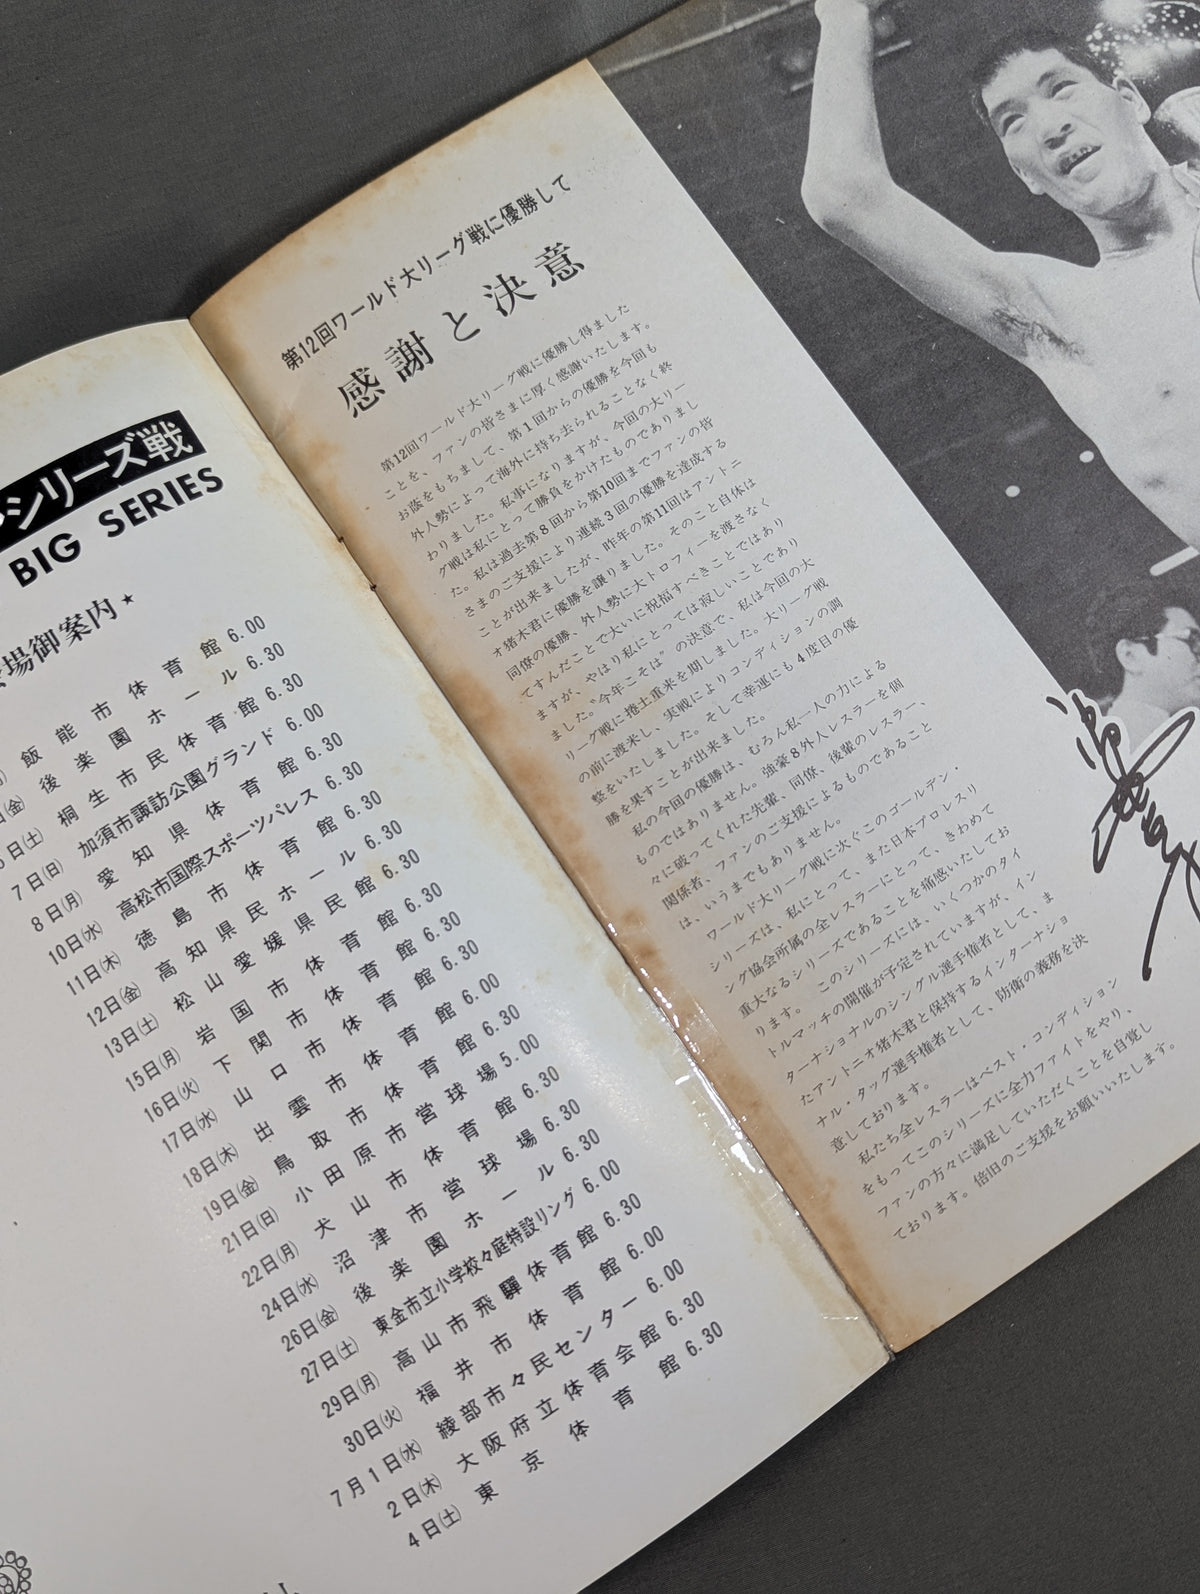 シリーズ戦
BIG SERIES
場御案内★
飯能市体育館 6.00
㈮ 後楽園ホール 6.30
日㈯ 桐生市民体育館 6.30
7日㈰ 加須市諏訪公園グランド 6.00
8日㈪ 愛知県体育館 6.30
10日㈬ 高松市国際スポーツパレス 6.30
11日㈭ 徳島市体育館 6.30
12日㈮ 高知県民ホール 6.30
13日㈯ 松山愛媛県民館 6.30
15日㈪ 岩国市体育館 6.30
16日㈫ 下関市体育館 6.30
17日㈬ 山口市体育館 6.30
18日㈭ 出雲市体育館 6.00
19日㈮ 鳥取市体育館 6.30
21日㈰ 小田原市営球場 5.00
22日㈪ 犬山市体育館 6.30
24日㈬ 沼津市営球場 6.30
26日㈮ 後楽園ホール 6.30
27日㈯ 東金市立小学校々庭特設リング 6.00
29日㈪ 高山市飛騨体育館 6.30
30日㈫ 福井市体育館 6.00
7月1日㈬ 綾部市々民センター 6.00
2日㈭ 大阪府立体育会館 6.30
4日㈯ 東京体育館 6.30
第12回ワールド大リーグ戦に優勝して
感謝と決意
第12回ワールド大リーグ戦に優勝し得ました
ことを、ファンの皆さまに厚く感謝いたします。
お蔭をもちまして、第1回からの優勝を今回も
外人勢によって海外に持ち去られることなく終
わりました。私事になりますが、今回の大リー
グ戦は私にとって勝負をかけたものでありまし
た。私は過去第8回から第10回までファンの皆
さまのご支援により連続3回の優勝を達成する
ことが出来ましたが、昨年の第11回はアントニ
オ猪木君に優勝を譲りました。そのこと自体は
同僚の優勝、外人勢に大トロフィーを渡さなく
てすんだことで大いに祝福すべきことではあり
ますが、やはり私にとっては寂しいことであり
ました。“今年こそは”の決意で、私は今回の大
リーグ戦に捲土重来を期しました。大リーグ戦
の前に渡米し、実戦によりコンディションの調
整をいたしました。そして幸運にも4度目の優
勝を果すことが出来ました。
私の今回の優勝は、むろん私一人の力による
ものではありません。強豪8外人レスラーを個
々に破ってくれた先輩、同僚、後輩のレスラー、
関係者、ファンのご支援によるものであること
は、いうまでもありません。
ワールド大リーグ戦に次ぐこのゴールデン・
シリーズは、私にとって、また日本プロレスリ
ング協会所属の全レスラーにとって、きわめて
重大なるシリーズであることを痛感いたしてお
ります。このシリーズには、いくつかのタイ
トルマッチの開催が予定されていますが、イン
ターナショナルのシングル選手権者として、ま
たアントニオ猪木君と保持するインターナショ
ナル・タッグ選手権者として、防衛の義務を決
意しております。
私たち全レスラーはベスト・コンディション
をもってこのシリーズに全力ファイトをやり、
ファンの方々に満足していただくことを自覚し
ております。倍旧のご支援をお願いいたします。